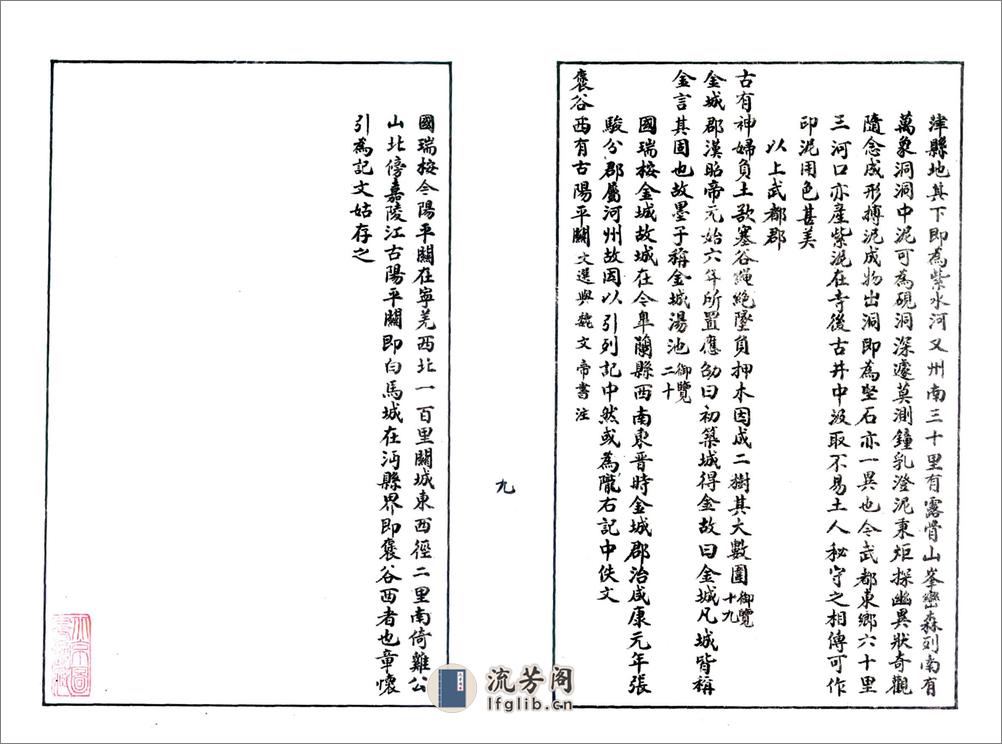 津縣地其下即為紫水河又州南三十里有露骨山峯巒森列南有
萬象洞洞中泥可為硯洞深邃莫測鐘乳澄泥東炬探幽異狀奇觀
隨念成形搏泥成物出洞即為堅石亦一異也今武都東鄉六十里
三河口亦產紫泥在寺後古井中汲取不易土人秘守之相傳可作
印泥用色甚美
以上武都郡
古有神婦負土欲塞谷繩絕墜負押木因成二樹其大數圍御覽十九
金城郡漢昭帝元始六年所置應劭曰初築城得金故曰金城凡城皆稱
金言其固也故墨子稱金城湯池御覽二十
國瑞桉金城故城在今皋蘭縣西南東晉時金城郡治咸康元年張
駿分郡屬河州故因以引列記中然或為隴右記中佚文
襃谷西有古陽平關文選與魏文帝書注
九
國瑞桉今陽平關在寧羌西北一百里關城東西徑二里南倚雞公
山北傍嘉陵江古陽平關即白馬城在沔縣界即襃谷西者也章懷
引為記文姑存之
流芳阁
lfglib.cn